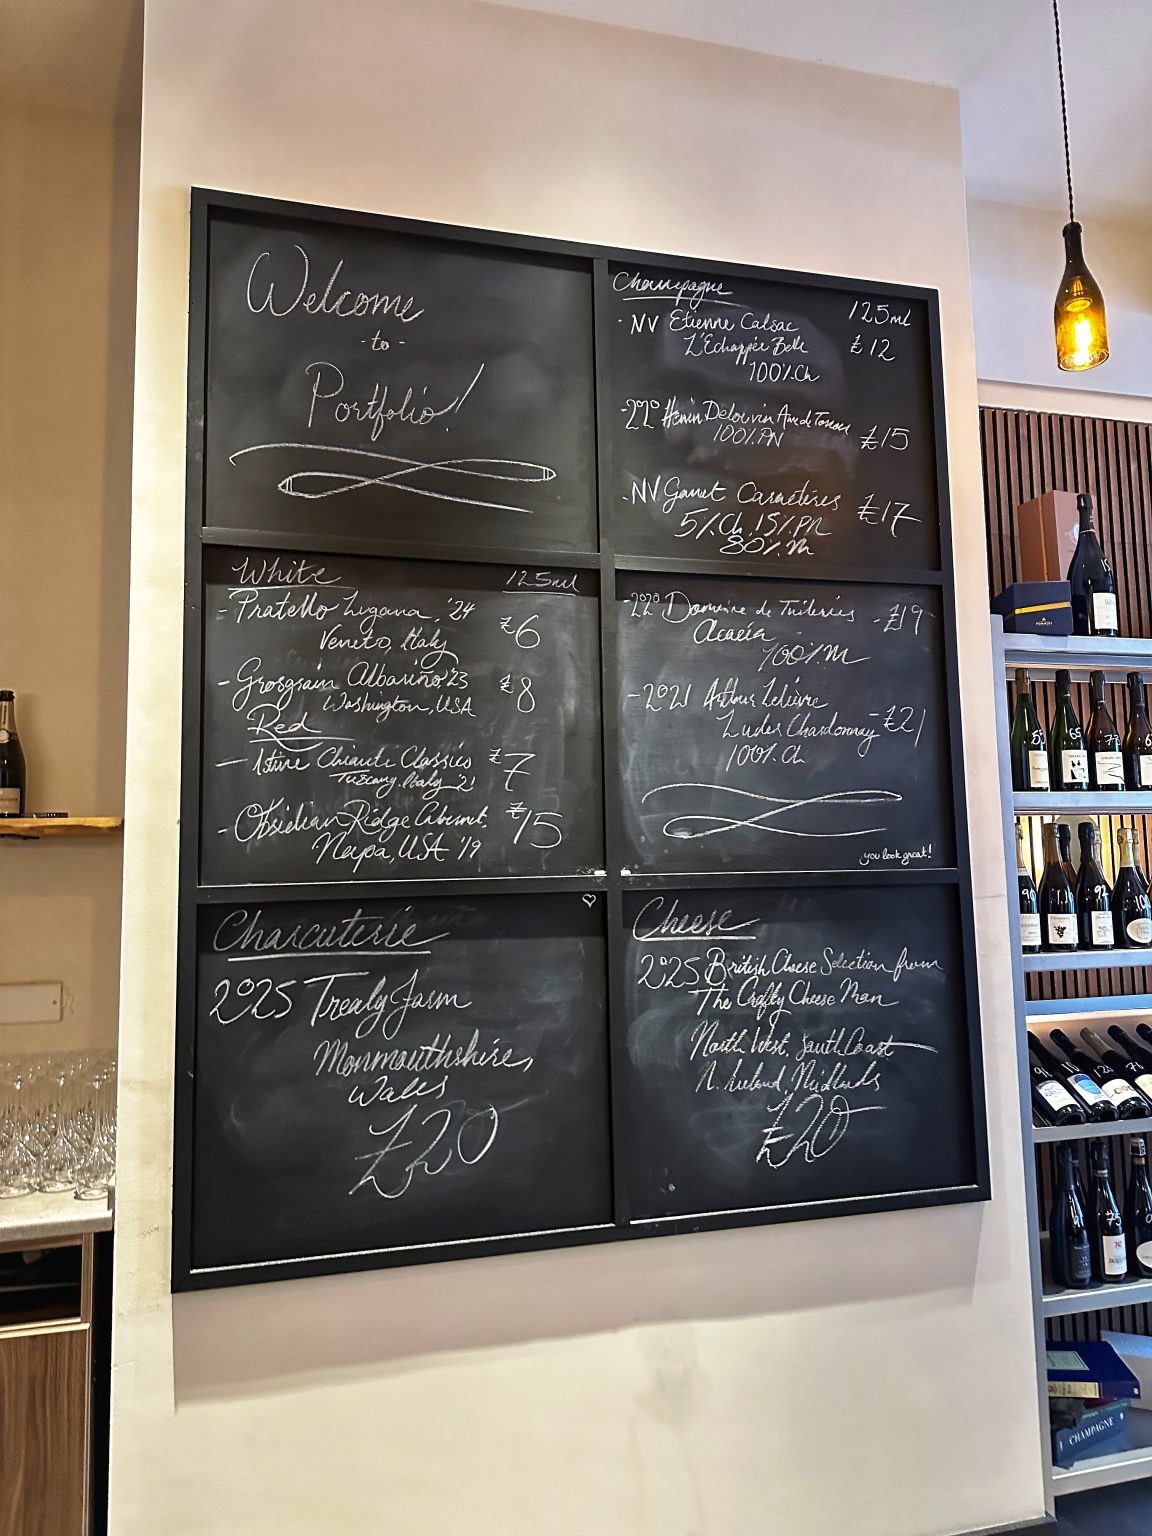 Welcome
- to -
Portfolio!
Champagne
125ml
- NV Etienne Calsac £12
L'Echappée Belle
100%.Ch
- 2020 Henin Delouvin £15
100%.PN
- NV Gamet Caractères £17
5%.Ch 15%.PN
80%.M
White 125ml
- Pratello Lugana, '24 £6
Veneto, Italy
- Grosgrain Albariño '23 £8
Washington, USA
Red
- Istine Chianti Classico £7
Tuscany, Italy '21
- Obsidian Ridge Cabernet, £15
Napa, USA '19
- 2020 Domaine de Tuileries - £19
Acacia
100%.M
- 2021 Arthur Lelièvre
Ludes Chardonnay - £21
100%.Ch
you look great!
Charcuterie
2025 Trealy Farm
Monmouthshire,
Wales
£20
Cheese
2025 British Cheese Selection from
The Crafty Cheese Man
North West, South Coast
N. Ireland, Midlands
£20
CHAMPAGNE